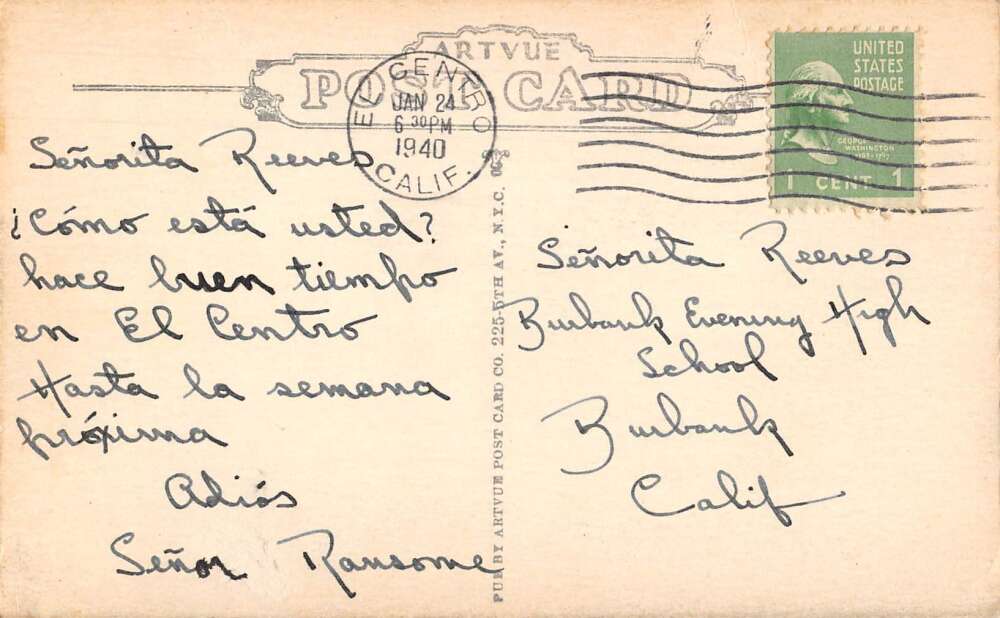 ARTVUE
POST CARD
EL CENTRO
JAN 24
6 30 PM
1940
CALIF.
UNITED
STATES
POSTAGE
GEORGE
WASHINGTON
1 CENT 1
Señorita Reeves
¿Cómo está usted?
hace buen tiempo
en El Centro
Hasta la semana
próxima
Adiós
Señor Ransome
PUB BY ARTVUE POST CARD CO. 225-5TH AV., N.Y.C.
Señorita Reeves
Burbank Evening High
School
Burbank
Calif